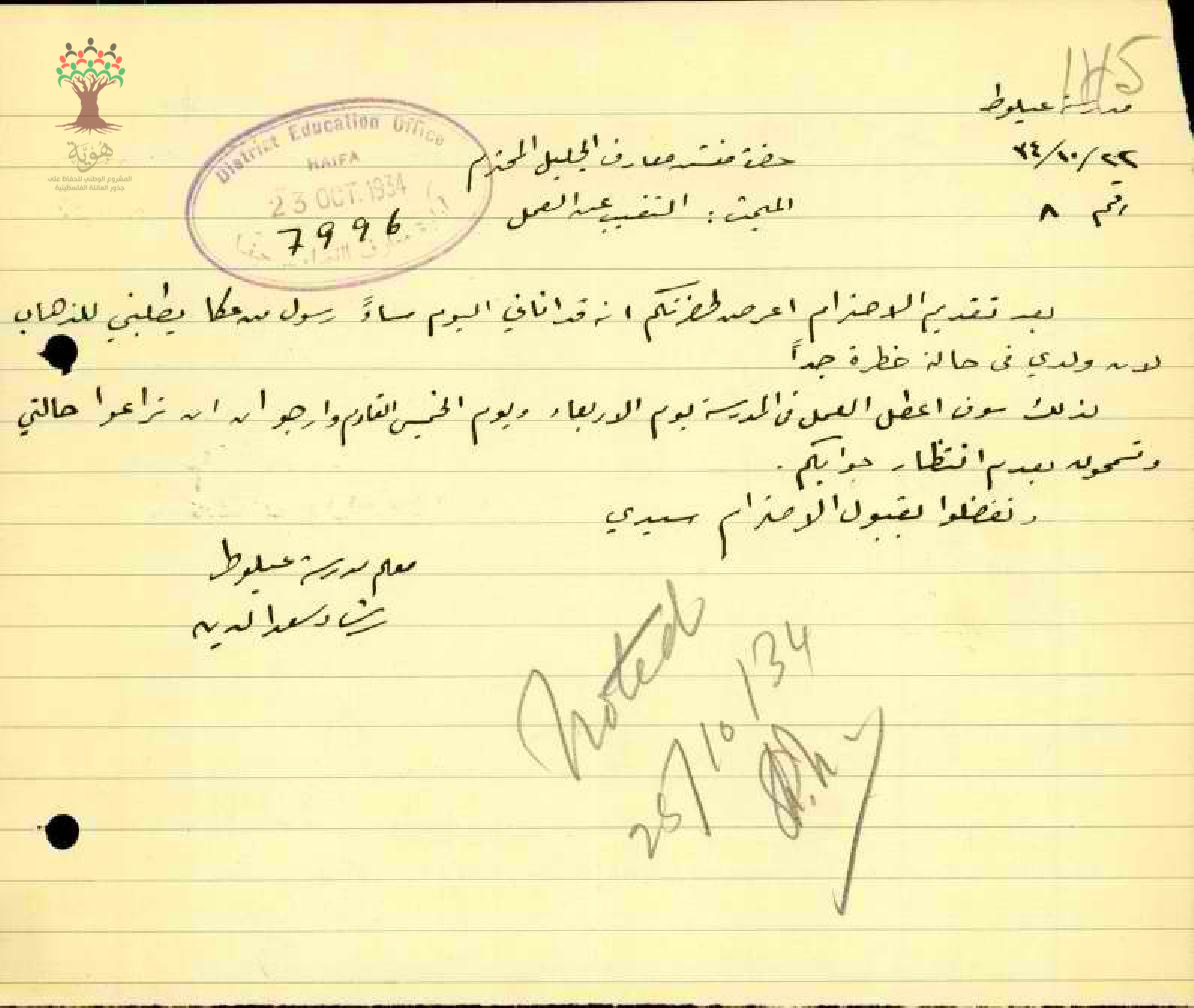 115
مدرسة عيلوط
٢٢/١٠/٣٤
رقم ٨
حضرة مفتش معارف الجليل المحترم
المبحث : التغيب عن العمل
District Education Office
HAIFA
23 OCT. 1934
7996
هوية
المشروع الوطني للحفاظ على
جذور العائلة الفلسطينية
بعد تقديم الاحترام اعرض لحضرتكم انه قد اتاني اليوم مساءً رسول من عكا يطلبني للذهاب
لان ولدي في حالة خطرة جداً
لذلك سوف اعطل العمل في المدرسة يوم الاربعاء ويوم الخميس القادم وارجو ان ان تراعوا حالتي
وتسمحون بعدم انتظار جوابكم .
وتفضلوا بقبول الاحترام سيدي
معلم مدرسة عيلوط
رشاد سعد الدين
Noted
25/10/34